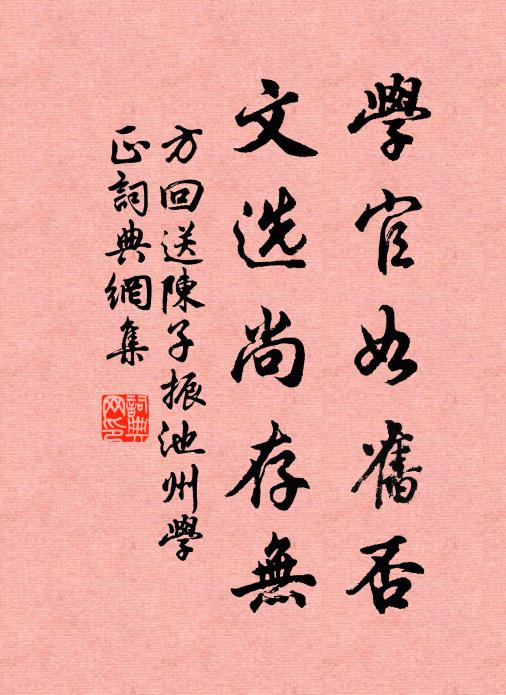 學官如舊否
文选尚存無
方回送陳子振池州學
正詞典網集
詞典網印